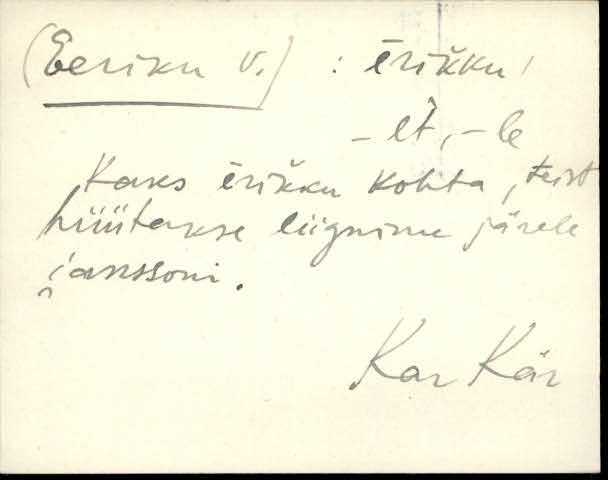 (Eeriku v.) : ērikku,
– ēt, – le
Kaks ērikku kohta, teist
hüütakse liignime järele
i̯anssoni.
Kar Kär